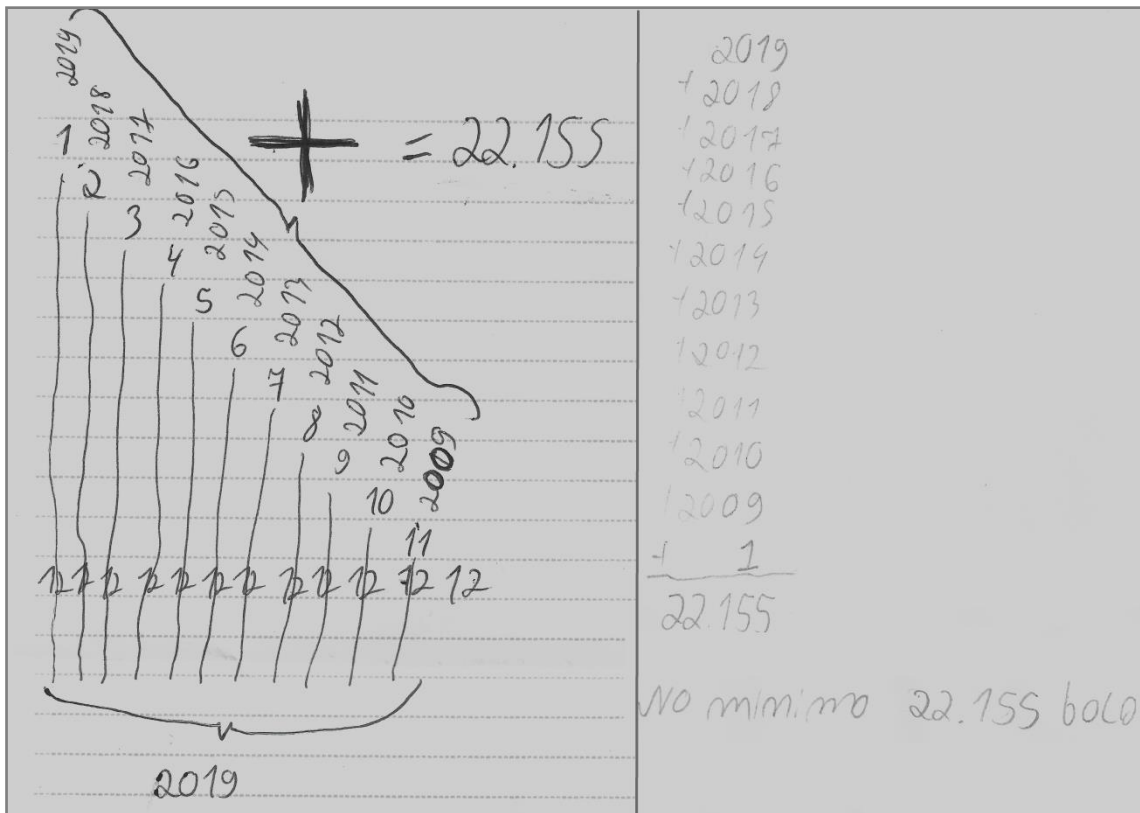 2019
1 2018
2 2017
3 2016
4 2015
5 2014
6 2013
7 2012
8 2011
9 2010
10 2009
11
12 12 12 12 12 12 12 12 12 12 12 12
2019
+ = 22.155
2019
+2018
+2017
+2016
+2015
+2014
+2013
+2012
+2011
+2010
+2009
+ 1
22.155
No minimo 22.155 bolo